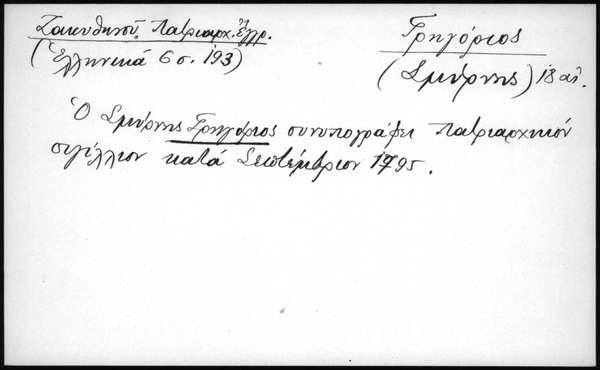 Ζακυθηνοῦ, Πατριαρχ. ἔγγρ.
(Ἑλληνικά 6 σ. 193)
Γρηγόριος
(Σμύρνης) 18 αἰ.
Ὁ Σμύρνης Γρηγόριος συνυπογράφει Πατριαρχικόν
σιγίλλιον κατά Σεπτέμβριον 1795.